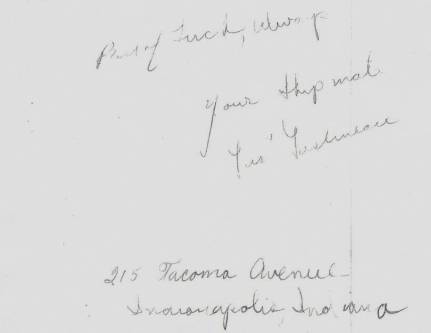 Best of Luck, Always
Your Shipmate
215 Tacoma Avenue
Indianapolis, Indiana